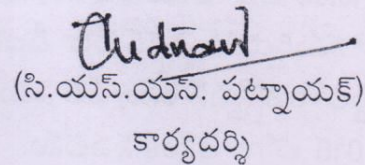 (సి.యస్.యస్. పట్నాయక్)
కార్యదర్శి